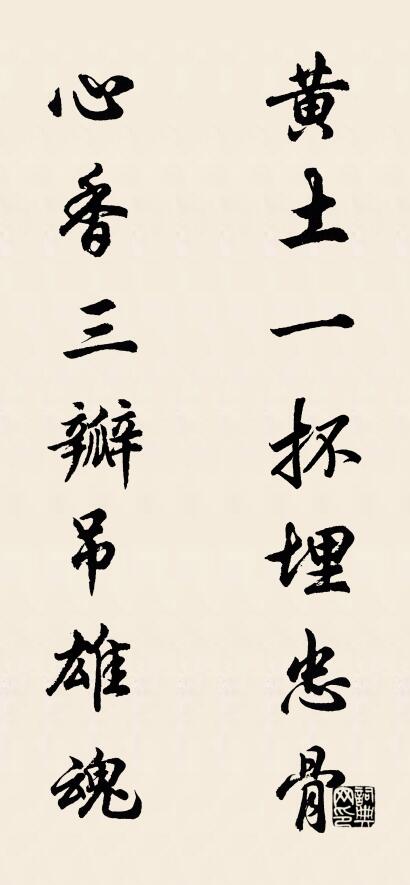 黄土一抔埋忠骨
心香三瓣吊雄魂
詞典网印